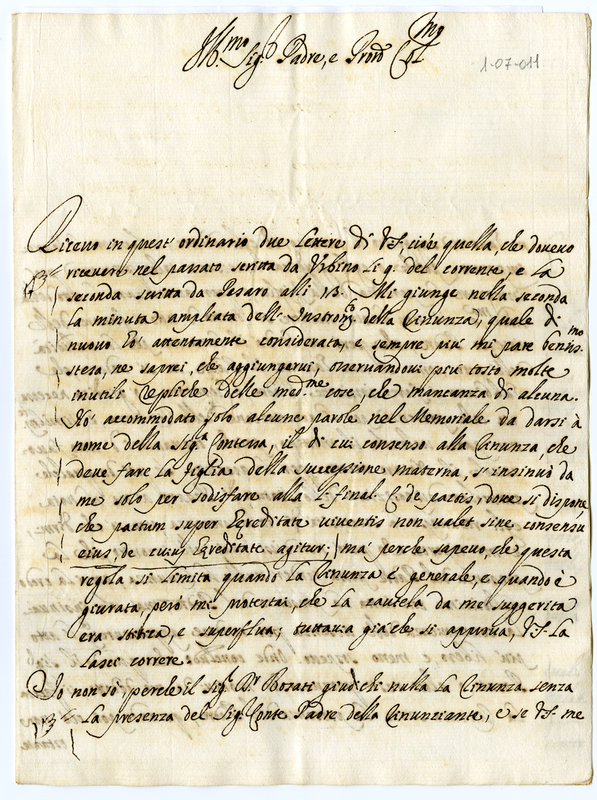 Ill.mo Sig. Padre, e Pron Col.mo
1-07-011
Ricevo in quest' ordinario due lettere di VS, cioè quella, che dovevo
ricevere nel passato scritta da Urbino li 9. del corrente, e la
seconda scritta da Pesaro alli 13. Mi giunge nella seconda
la minuta ampliata dell' Instrom.to della Rinunza, quale di
nuovo hò attentamente considerata, e sempre più mi pare beniss.mo
stesa, ne saprei, che aggiungervi, osservandovi più tosto molte
inutili repliche delle med.me cose, che mancanza di alcuna.
Hò accommodato solo alcune parole nel Memoriale da darsi à
nome della Sig.a Contessa, il di cui consenso alla Rinunza, che
deve fare la figlia della successione materna, s'insinuò da
me solo per sodisfare alla l. final. C. de pactis, dove si dispone
che pactum super hereditate viventis non valet sine consensu
eius, de cuius hereditate agitur; ma perche sapevo, che questa
regola si limita quando la Rinunza è generale, e quando è
giurata, però mi protestai, che la cautela da me suggerita
era stitica, e superflua; tuttavia già che si approva, VS. la
lasci correre.
Io non sò, perche il Sig. Dr Bosati giudichi nulla la Rinunza senza
la presenza del Sig. Conte Padre della Rinunziante, e se VS. me